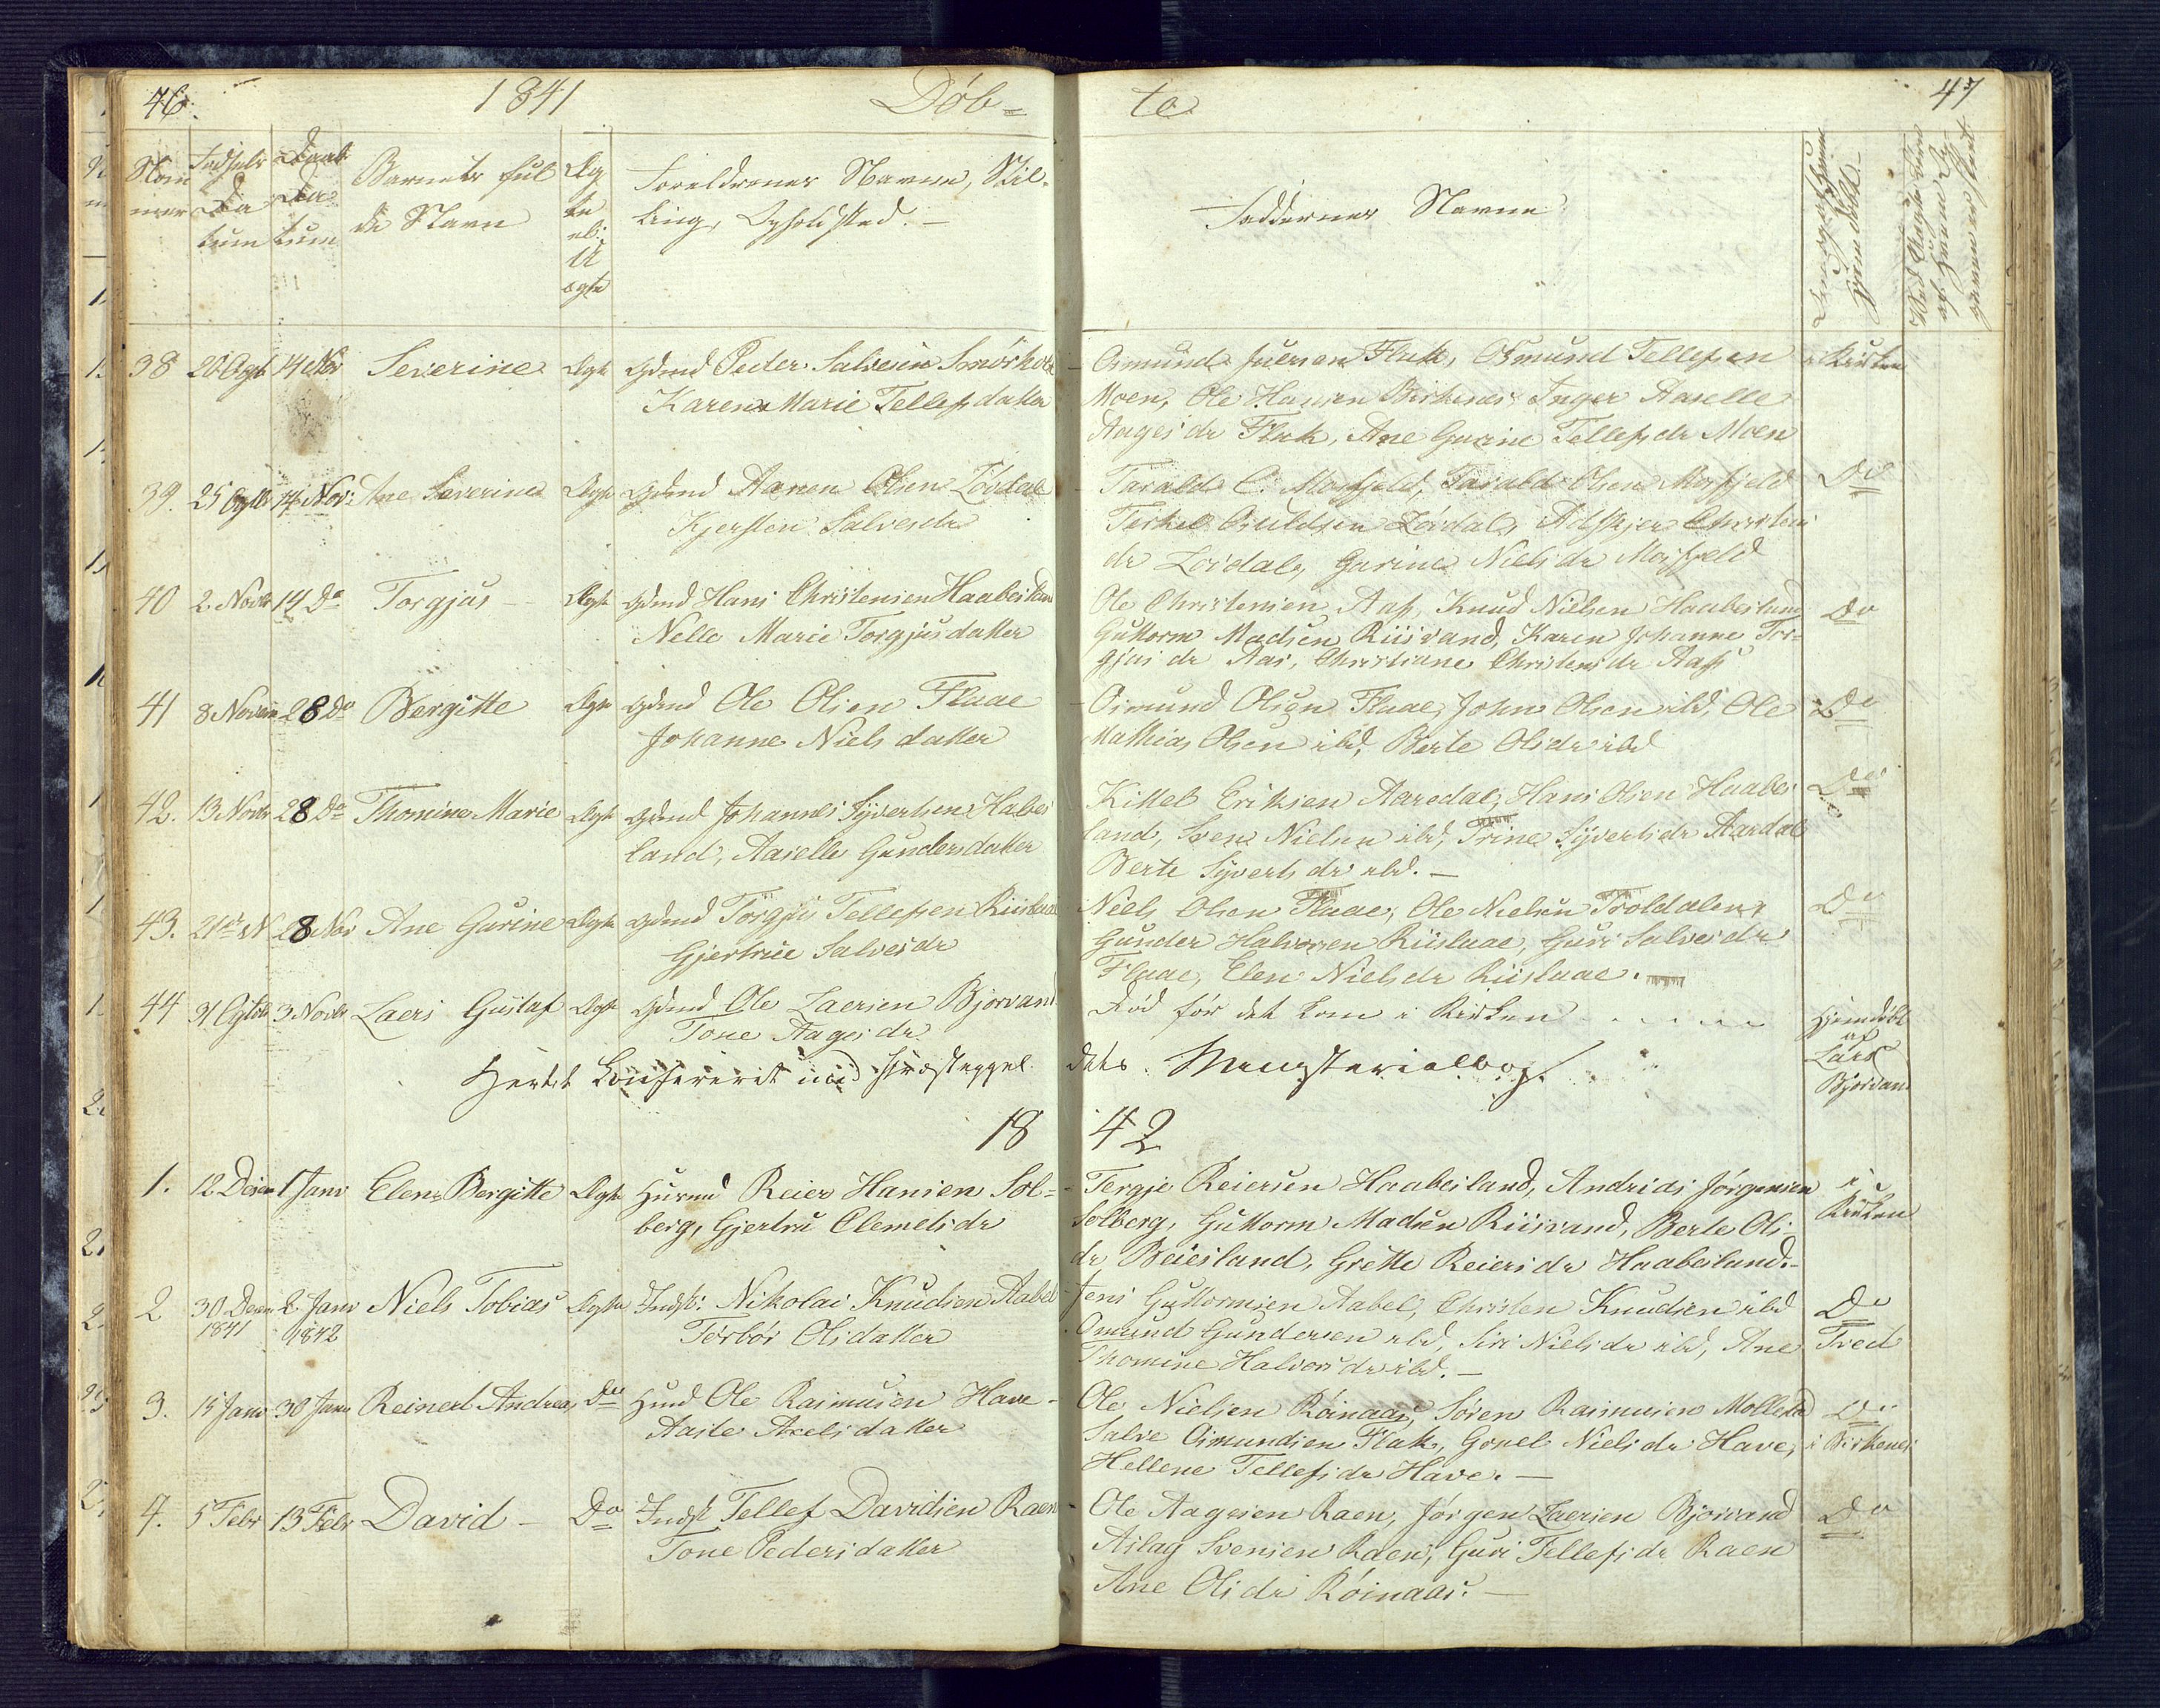 46.
1841
Døb=
te
47
Num
mer
Fødsels
Da
tum
Daabs
Da
tum
Barnets ful
de Navn
Æg
te
el:
U
ægte
Forældrenes Navne, Stil-
ling, Opholdsted. -
Faddernes Navne
38 20 Ogt 14 Nov Severine Ægte Gdmd Peder Salvesen
Karen Marie Tellefsdatter
Osmund Flak, Osmund Tellefsen
Moen, Ole Hansen Birkenes Inger Aaselle
Aagesdr Flak, Ane Gurine Tellefsdr Moen
i Kirken
39. 25 Ogtb 14 Nov: Ane Severine Ægte Gdmd Aanen Olsen Lövdal
Kjersten Salvesdr
Tarald C. Mosfjeld, Tarald Olsen Mosfjeld
Terkel Lövdal, Christens
dr Lövdal, Gurine Nielsdr Mosfjeld
Do
40 2. Novbr 14 Do Torgjus - Ægte Gdmd Hans Christensen Haabesland
Nelle Marie Torgjusdatter
Ole Christensen Aas, Knud Nielsen Haabesland
Guttorm Madsen Riisvand, Karen Johanne Tor=
gjus dr Aas, Christiane Christensdr Aas
Do
41 8 Novem 28 Do Bergitte Ægte Gdmd Ole Olsen Flaae
Johanne Nielsdatter
Osmund Olsen Flaae, John Olsen ibd, Ole
Mathias Olsen ibd, Berte Olsdr ibd
Do
42. 13 Novbr 28 Do Thomine Marie Ægte Gdmd Johannes Syvertsen Habes
land, Aaselle Gundersdatter
Kittel Eriksen Aaredal, Hans Olsen Haabes
land, Sven Nielsen ibd, Trine Syvertsdr Aardal
Berte Syvertsdr ibd. -
Do
43. 21de N 28 Nov Ane Gurine Ægte Gdmd Torgjus Tellefsen Riislaae
Gjertrue Salvesdr
Niels Olsen Flaae, Ole Nielsen Troldalen,
Gunder Halvorsen Riislaae, Guri Salvesdr
Flaae, Elen Nielsdr Riislaae.
Do
44 31 Ogtob 3 Novbr Laers Gustaf Ægte Gdmd Ole Laersen Bjorvand
Tone Aagesdr
Død før det kom i Kirken
Hjemdøbt
af
Lars
Bjorvand
Hertil Confereret med
dets Ministerialbog.
18 42
1. 12 Decem 1 Janr Elen Bergitte Ægte Husmd Reier Hansen Sol=
berg, Gjertru Clemetsdr
Tergje Reiersen Haabesland, Andreas Jørgensen
Solberg, Guttorm Madsen Riisvand, Berte Ols
dr Beiesland, Grette Reiersdr Haabesland.-
i
Kirken
2 30 Decem 2 Janr Niels Tobias Ægte Indst: Nikolai Knudsen Aabel
1841 1842
Torbor Olsdatter
Jens Guttormsen Aabel, Christen Knudsen ibd
Omund Gundersen ibd, Siri Nielsdr ibd, Ane
Thomine Halvorsdr ibd. -
Do
Tved
3. 15 Janr 30 Janr Reinert Andreas Do Husmd Ole Rasmusen Have -
Aaste Axelsdatter
Ole Nielsen Röinaas, Sören Rasmusen Mollestad
Salve Osmundsen Flak, Gonel Nielsdr Have,
Hellene Tellefsdr Have. -
Do
i Birkenes
4. 5 Febr 13 Febr David - Do Indst Tellef Davidsen Raen
Tone Pedersdatter
Ole Aagesen Raen, Jörgen Laersen Bjorvand
Aslag Svensen Raen, Guri Tellefsdr Raen
Ane Olsdr Röinaas. -
Do